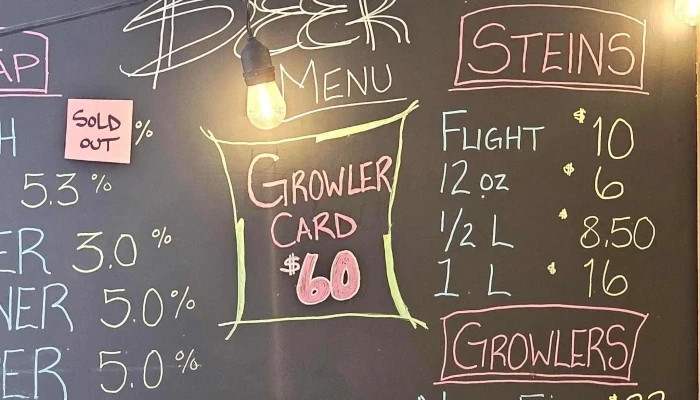 BEER
MENU
AP
H SOLD OUT %
5.3 %
ER 3.0 %
NER 5.0 %
ER 5.0 %
GROWLER
CARD
$60
STEINS
FLIGHT $10
12 oz $6
1/2 L $8.50
1 L $16
GROWLERS